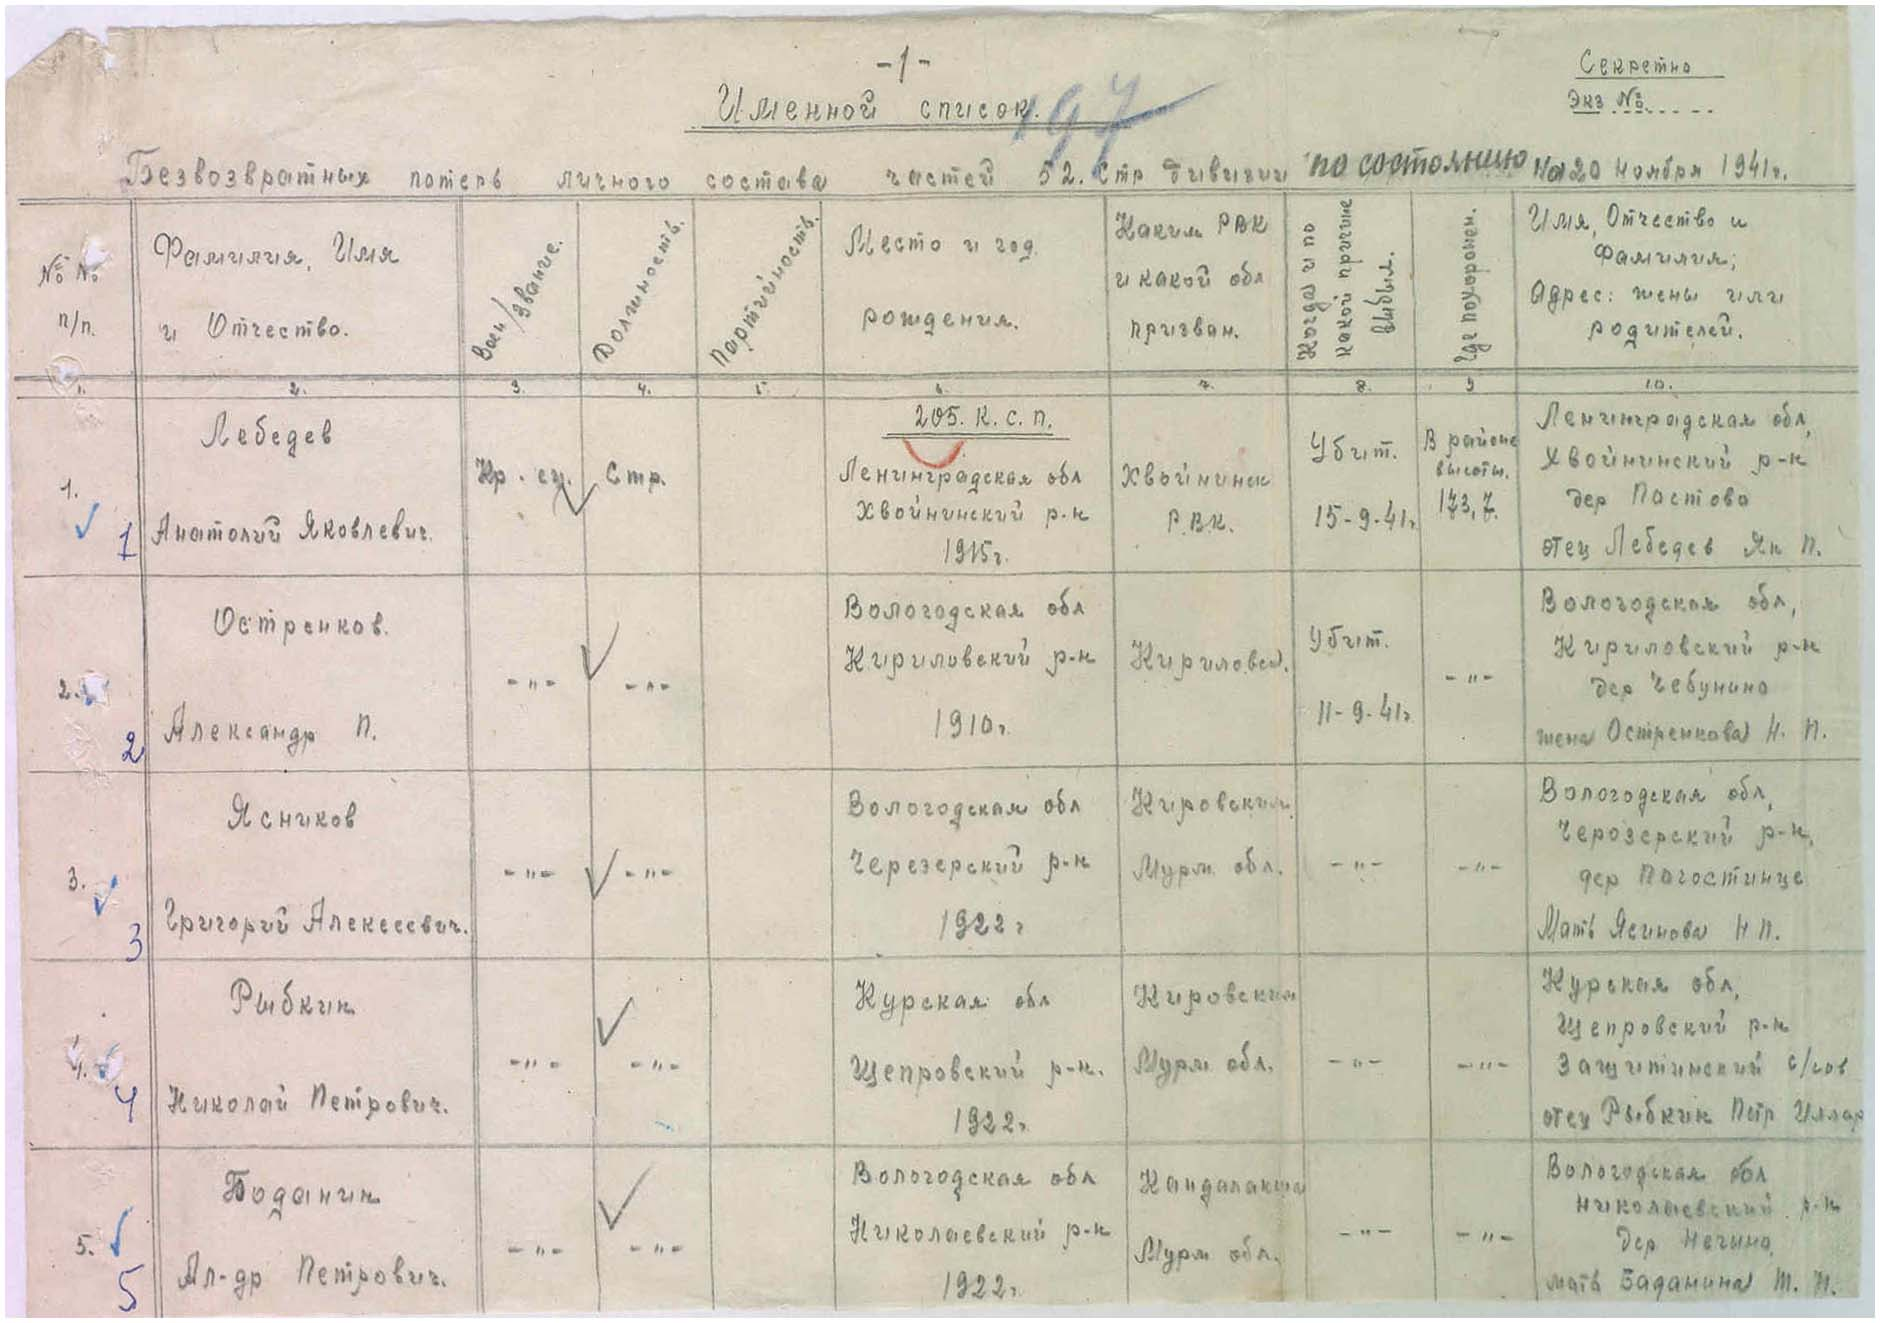 -1-
Секретно
Экз №
Именной список.
197
Безвозвратных потерь личного состава частей 52. Стр дивизии по состоянию на 20 ноября 1941г.
№ №
п/п.
Фамилия, Имя
и Отчество.
Воен/звание.
Должность.
Партийность.
Место и год
рождения.
Каким РВК
и какой обл
призван.
Когда и по
какой причине
выбыл.
Где похоронен.
Имя, Отчество и
Фамилия;
Адрес: жены или
родителей.
1. 2. 3. 4. 5. 6. 7. 8. 9 10.
205. К. С. П.
1.
1
Лебедев
Анатолий Яковлевич.
Кр. ец.
Стр.
Ленинградская обл
Хвойнинский р-н
1915г.
Хвойнинск
Р.В.К.
Убит.
15-9-41г
В районе
высоты.
173,7.
Ленинградская обл,
Хвойнинский р-н
дер Пастово
отец Лебедев Як П.
2.
2
Остренков.
Александр П.
-"-
-"-
Вологодская обл
Кириловский р-н
1910г.
Кириловск.
Убит.
11-9-41г
-"-
Вологодская обл,
Кириловский р-н
дер Чебунино
жена Остренкова Н. П.
3.
3
Ясников
Григорий Алексеевич.
-"-
-"-
Вологодская обл
Черезерский р-н
1922г
Кировским
Мурм. обл.
-"-
-"-
Вологодская обл,
Черозерский р-н,
дер Погостинце
Мать Ясинова Н П.
4.
4
Рыбкин
Николай Петрович.
-"-
-"-
Курская обл
Щепровский р-н.
1922г.
Кировским
Мурм обл.
-"-
-"-
Курская обл,
Щепровский р-н
Защитинский с/сов
отец Рыбкин Петр Иллар
5.
5
Боданин
Ал-др Петрович.
-"-
-"-
Вологодская обл
Николаевский р-н
1922г.
Кандалакша
Мурм обл.
-"-
-"-
Вологодская обл
Николаевский р-н
дер Нечино
мать Баданина М. Н.